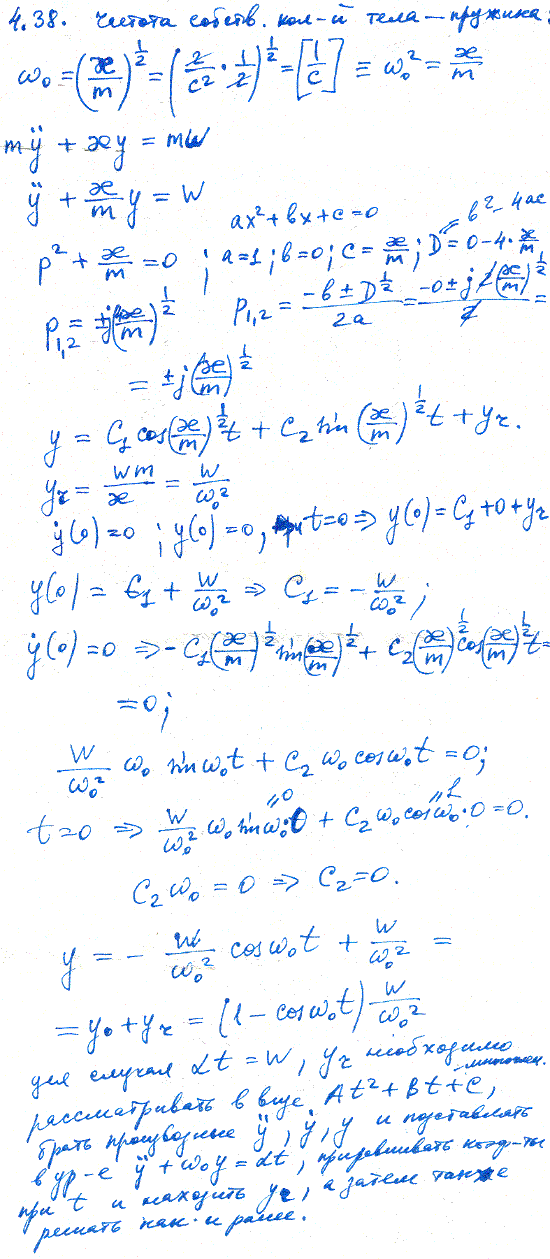 4.38. Частота собств. кол-й тела – пружина:
ω₀ = (æ/m)^(1/2) = (2/c² · 1/2)^(1/2) = [1/c] ≡ ω₀² = æ/m
mÿ + æy = mW
ÿ + æ/m y = W
ax² + bx + c = 0
b² - 4ac
p² + æ/m = 0 ; a = 1; b = 0; c = æ/m; D = 0 - 4·æ/m
p₁,₂ = ±j(æ/m)^(1/2) p₁,₂ = (-b ± D^(1/2))/2a = (-0 ± j2(æ/m)^(1/2))/2 =
= ±j(æ/m)^(1/2)
y = C₁ cos(æ/m)^(1/2)t + C₂ sin(æ/m)^(1/2)t + yᵣ.
yᵣ = Wm/æ = W/ω₀²
ẏ(0) = 0 ; y(0) = 0, при t=0 ⇒ y(0) = C₁ + 0 + yᵣ
y(0) = C₁ + W/ω₀² ⇒ C₁ = - W/ω₀² ;
ẏ(0) = 0 ⇒ -C₁(æ/m)^(1/2) sin(æ/m)^(1/2) + C₂(æ/m)^(1/2) cos(æ/m)^(1/2)t =
= 0;
W/ω₀² ω₀ sin ω₀t + C₂ω₀ cos ω₀t = 0;
=0 =1
t=0 ⇒ W/ω₀² ω₀ sin ω₀·0 + C₂ω₀ cos ω₀·0 = 0.
C₂ω₀ = 0 ⇒ C₂ = 0.
y = - W/ω₀² cos ω₀t + W/ω₀² =
= y₀ + yᵣ = (1 - cos ω₀t) W/ω₀²
для случая αt = W, yᵣ необходимо
многочлен.
рассматривать в виде At² + Bt + C,
брать производные ÿ, ẏ, y и подставлять
в ур-е ÿ + ω₀y = αt, приравнивать коэф-ты
при t и находить yᵣ, а затем также
решать как и ранее.